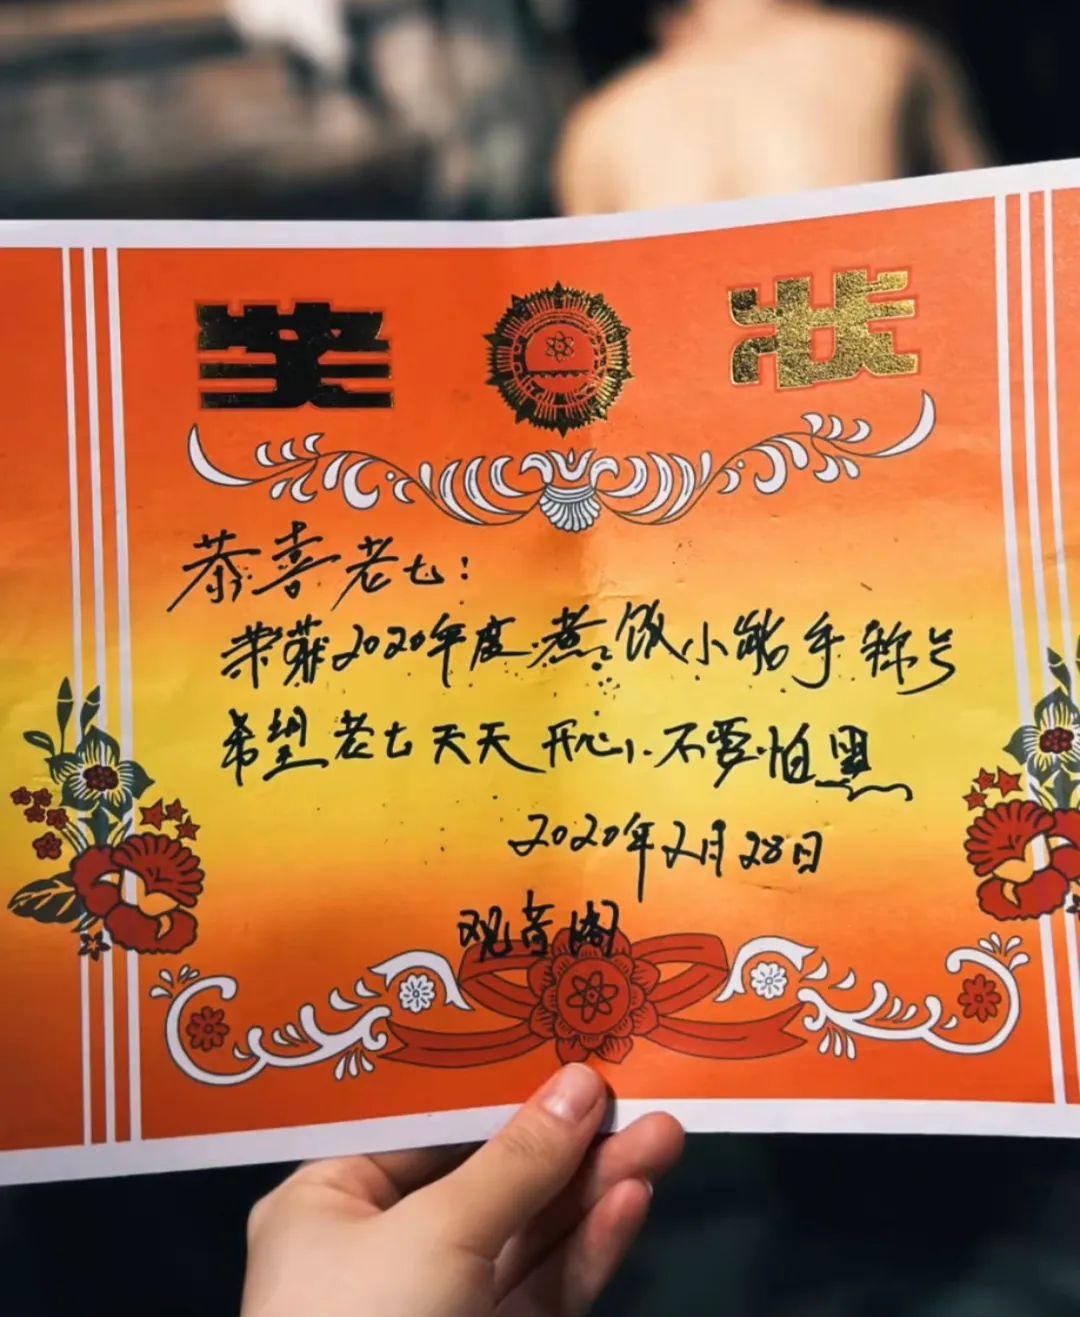 奖状
恭喜老七:
荣获2020年度煮饭小能手称号
希望老七天天开心、不要怕黑
2020年2月28日
观音阁